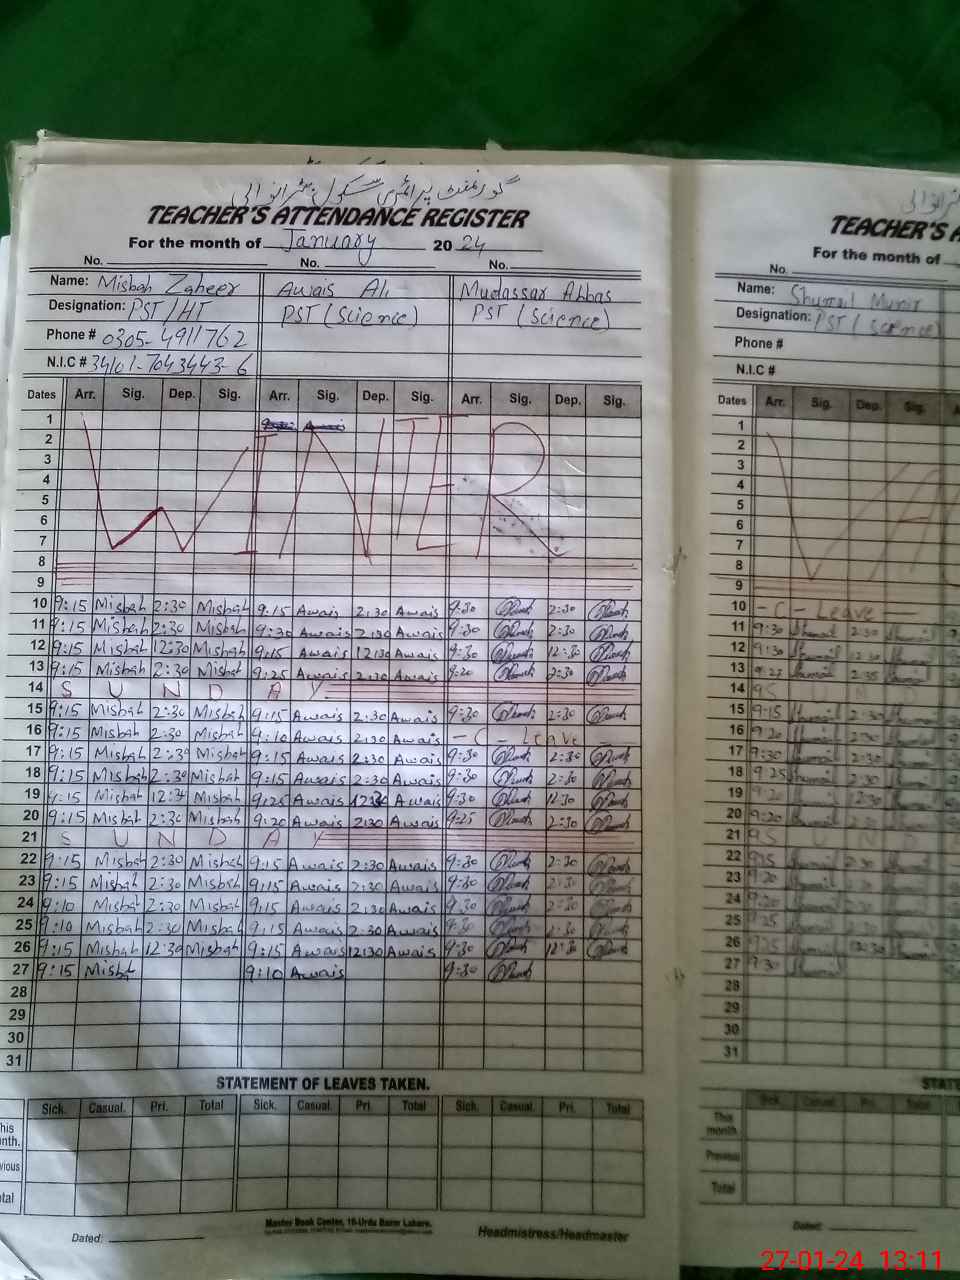 گورنمنٹ پرائمری سکول
TEACHER'S ATTENDANCE REGISTER
For the month of January 2024
No. No. No.
Name: Misbah Zaheer Awais Ali Mudassar Abbas
Designation: PST/HT PST (Science) PST (Science)
Phone # 0305-4911762
N.I.C # 34101-7043443-6
Dates Arr. Sig. Dep. Sig. Arr. Sig. Dep. Sig. Arr. Sig. Dep. Sig.
1
2
3
4
5
6
7
WINTER
8
9
10 9:15 Misbah 2:30 Misbah 9:15 Awais 2:30 Awais 9:30 2:30
11 9:15 Misbah 2:30 Misbah 9:30 Awais 2:30 Awais 9:30 2:30
12 9:15 Misbah 12:30 Misbah 9:15 Awais 12:30 Awais 9:30 12:30
13 9:15 Misbah 2:30 Misbah 9:25 Awais 2:30 Awais 9:20 2:30
14 S U N D A Y
15 9:15 Misbah 2:30 Misbah 9:15 Awais 2:30 Awais 9:30 2:30
16 9:15 Misbah 2:30 Misbah 9:10 Awais 2:30 Awais - C - Leave -
17 9:15 Misbah 2:30 Misbah 9:15 Awais 2:30 Awais 9:30 2:30
18 9:15 Misbah 2:30 Misbah 9:15 Awais 2:30 Awais 9:30 2:30
19 9:15 Misbah 12:30 Misbah 9:25 Awais 12:30 Awais 9:30 12:30
20 9:15 Misbah 2:30 Misbah 9:20 Awais 2:30 Awais 9:25 2:30
21 S U N D A Y
22 9:15 Misbah 2:30 Misbah 9:15 Awais 2:30 Awais 9:30 2:30
23 9:15 Misbah 2:30 Misbah 9:15 Awais 2:30 Awais 9:30 2:30
24 9:10 Misbah 2:30 Misbah 9:15 Awais 2:30 Awais 9:30 2:30
25 9:10 Misbah 2:30 Misbah 9:15 Awais 2:30 Awais 9:30 2:30
26 9:15 Misbah 12:30 Misbah 9:15 Awais 12:30 Awais 9:30 12:30
27 9:15 Misbah 9:10 Awais 9:30
28
29
30
31
STATEMENT OF LEAVES TAKEN.
Sick. Casual. Pri. Total Sick. Casual. Pri. Total Sick. Casual. Pri. Total
This
nth.
vious
tal
Master Book Center, 16-Urdu Bazar Lahore.
Dated: Headmistress/Headmaster
TEACHER'S A
For the month of
No.
Name: Shumail Munir
Designation: PST (Science)
Phone #
N.I.C #
Dates Arr. Sig. Dep. Sig.
1
2
3
4
5
6
7
8
9
10 - C - Leave
11 9:30 Shumail 2:30 Shumail
12 9:30 Shumail 12:30 Shumail
13 9:25 Shumail 2:35 Shumail
14
15 9:15 Shumail 2:30 Shumail
16 9:20 Shumail 2:30 Shumail
17 9:30 Shumail 2:30 Shumail
18 9:25 Shumail 2:30 Shumail
19 9:20 Shumail 12:30 Shumail
20 9:20 Shumail
21
22 Shumail 2:30
23 9:20 Shumail
24 Shumail
25 9:25 Shumail
26 9:25 Shumail 12:30 Shumail
27 9:30 Shumail
28
29
30
31
STATE
Sick. Casual. Pri. Total
This
month.
Previous
Total
Dated:
27-01-24 13:11